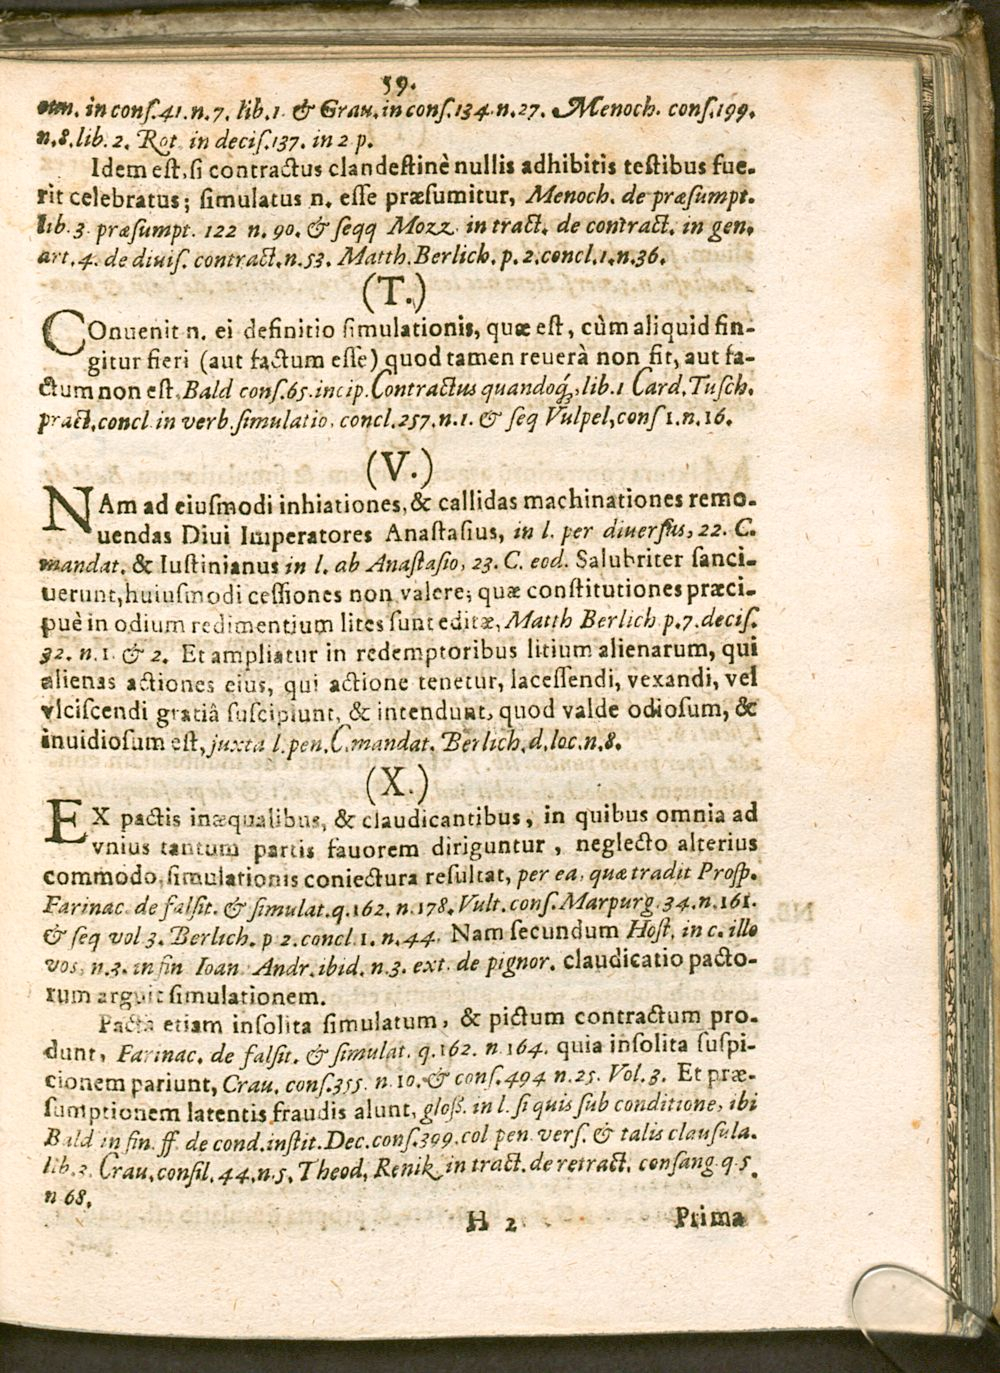 59.
in conſ. 41. n. 7. lib. 1. & Grau. in conſ. 134. n. 27. Menoch. conſ. 199.
n. 8. lib. 2. Rot in deciſ. 137. in 2 p.
Idem eſt, ſi contractus clandeſtinè nullis adhibitis teſtibus fue-
rit celebratus; ſimulatus n. eſſe præſumitur, Menoch. de præſumpt.
lib. 3. præſumpt. 122 n. 90. & ſeqq Mozz. in tract. de contract. in gen.
art. 4. de diuiſ. contract. n. 53. Matth. Berlich. p. 2. concl. 1. n. 36.
(T.)
COnuenit n. ei definitio ſimulationis, quæ eſt, cùm aliquid fin-
gitur fieri (aut factum eſſe) quod tamen reuerà non fit, aut fa-
ctum non eſt. Bald conſ. 65. incip. Contractus quandoq́;, lib. 1 Card. Tuſch.
pract. concl. in verb. ſimulatio, concl. 257. n. 1. & ſeq Vulpel, conſ 1. n. 16.
(V.)
NAm ad eiuſmodi inhiationes, & callidas machinationes remo-
uendas Diui Imperatores Anaſtaſius, in l. per diuerſas, 22. C.
mandat. & Iuſtinianus in l. ab Anaſtaſio, 23. C. eod. Salubriter ſanci-
uerunt, huiuſmodi ceſſiones non valere; quæ conſtitutiones præci-
puè in odium redimentium lites ſunt editæ, Matth Berlich p. 7. deciſ.
32. n. 1. & 2. Et ampliatur in redemptoribus litium alienarum, qui
alienas actiones eius, qui actione tenetur, laceſſendi, vexandi, vel
vlciſcendi gratiâ ſuſcipiunt, & intendunt, quod valde odioſum, &
inuidioſum eſt, juxta l. pen. C. mandat. Berlich. d. loc. n. 8.
(X.)
EX pactis inæqualibus, & claudicantibus, in quibus omnia ad
vnius tantum partis fauorem diriguntur, neglecto alterius
commodo, ſimulationis coniectura reſultat, per ea, quæ tradit Proſp.
Farinac. de falſit. & ſimulat. q. 162. n. 178. Vult. conſ. Marpurg. 34. n. 161.
& ſeq vol 3. Berlich. p 2. concl. 1. n. 44. Nam ſecundum Hoſt. in c. illo
vos, n. 3. in fin Ioan. Andr. ibid. n. 3. ext. de pignor. claudicatio pacto-
rum arguit ſimulationem.
Pacta etiam inſolita ſimulatum, & pictum contractum pro-
dunt, Farinac. de falſit. & ſimulat. q. 162. n. 164. quia inſolita ſuſpi-
cionem pariunt, Crau. conſ. 355. n. 10. & conſ. 494 n. 25. Vol. 3. Et præ-
ſumptionem latentis fraudis alunt, gloſſ. in l. ſi quis ſub conditione, ibi
Bald in fin. ff. de cond. inſtit. Dec. conſ. 399. col pen. verſ. & talis clauſula.
lib. 3. Crau. conſil. 44. n. 5. Theod. Renik in tract. de retract. conſang. q. 5.
n 68.
H 2 Prima